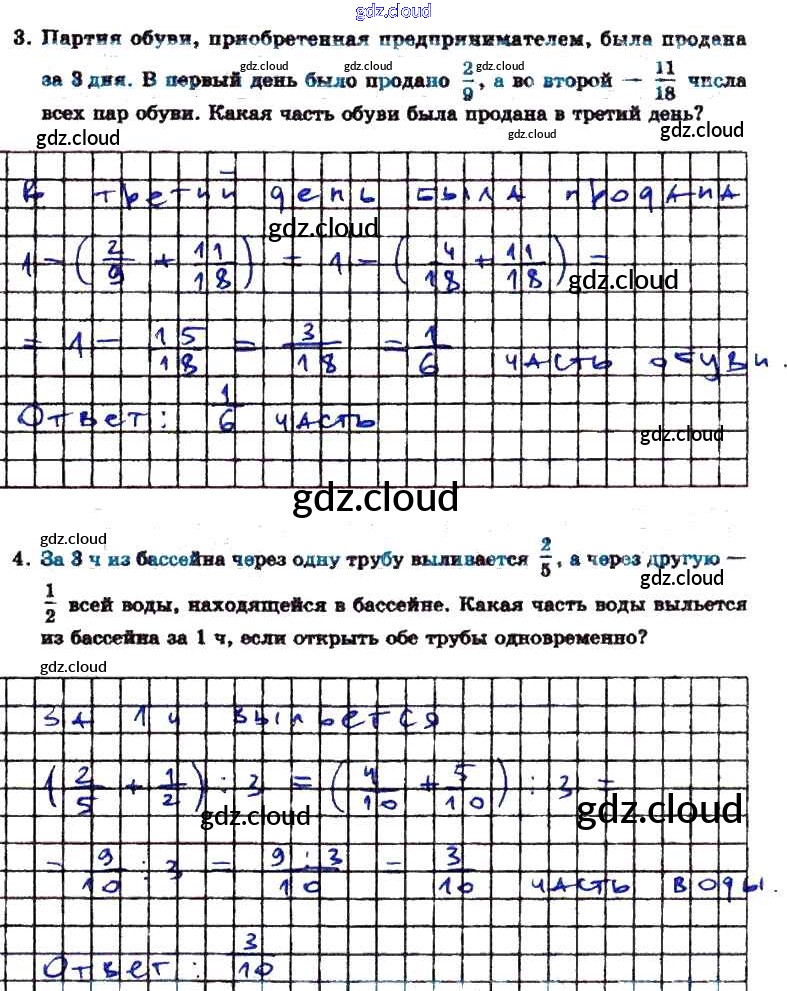 gdz.cloud
3. Партия обуви, приобретенная предпринимателем, была продана
gdz.cloud gdz.cloud gdz.cloud
за 3 дня. В первый день было продано 2/9, а во второй — 11/18 числа
всех пар обуви. Какая часть обуви была продана в третий день?
gdz.cloud gdz.cloud
В третий день была продана
gdz.cloud
1 - (2/9 + 11/18) = 1 - (4/18 + 11/18) =
gdz.cloud
= 1 - 15/18 = 3/18 = 1/6 часть обуви.
Ответ: 1/6 часть
gdz.cloud
gdz.cloud
gdz.cloud
4. За 3 ч из бассейна через одну трубу выливается 2/5, а через другую —
gdz.cloud
1/2 всей воды, находящейся в бассейне. Какая часть воды выльется
из бассейна за 1 ч, если открыть обе трубы одновременно?
gdz.cloud
За 1 ч выльется
(2/5 + 1/2) : 3 = (4/10 + 5/10) : 3 =
gdz.cloud gdz.cloud
= 9/10 : 3 = 9:3/10 = 3/10 часть воды.
Ответ: 3/10